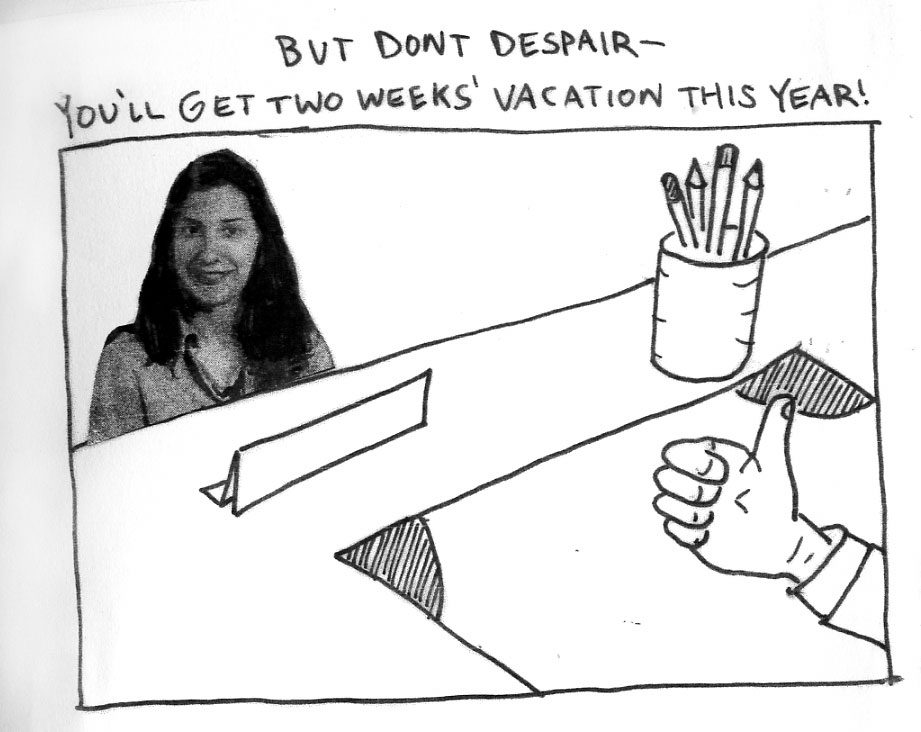 BUT DONT DESPAIR—
YOU'LL GET TWO WEEKS' VACATION THIS YEAR!